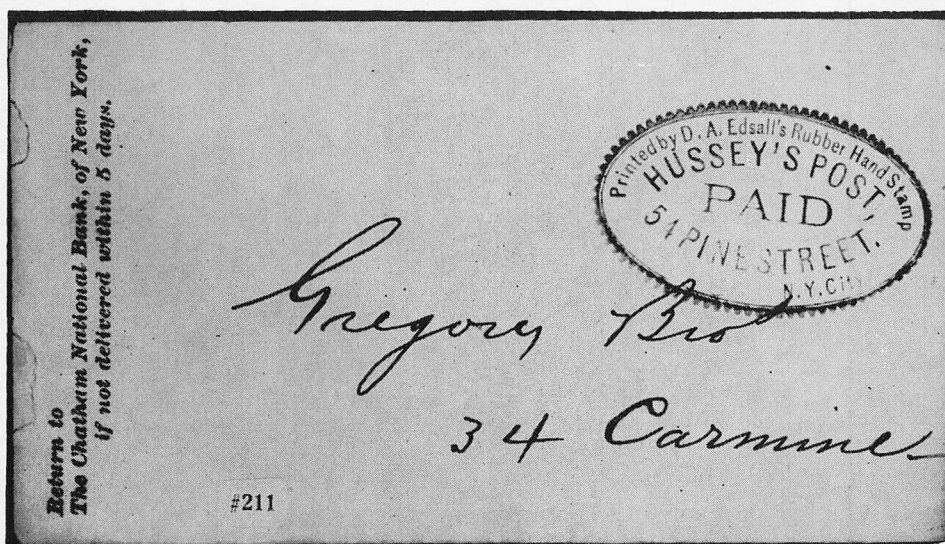 Return to
The Chatham National Bank, of New York,
if not delivered within 5 days.
Printed by D. A. Edsall's Rubber Hand Stamp
HUSSEY'S POST,
PAID
54 PINE STREET.
N.Y. City
Gregory Bro
34 Carmine
#211